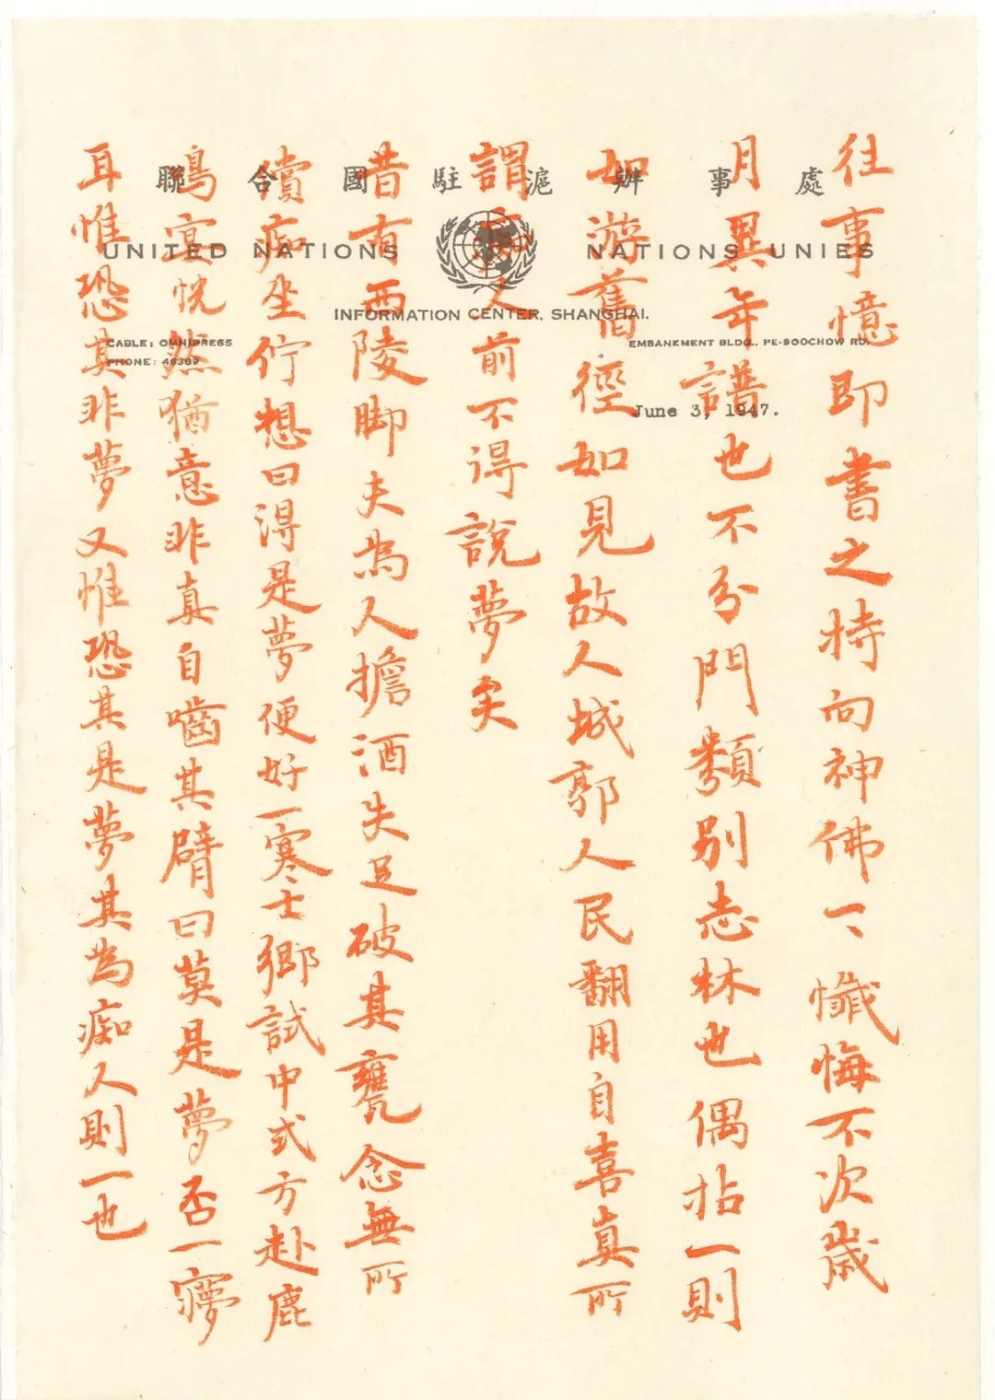 聯合國駐滬辦事處
UNITED NATIONS NATIONS UNIES
INFORMATION CENTER, SHANGHAI.
CABLE; OMNIPRESS EMBANKMENT BLDG., PE-SOOCHOW RD.
PHONE: 40389
June 3, 1947.
往事憶即書之持向神佛一、懺悔不次歲
月異年譜也不分門類別志林也偶拈一則
如游舊徑如見故人城郭人民翻用自喜真所
謂痴人前不得說夢矣
昔有西陵脚夫為人擔酒失足破其甕念無所
償痴坐佇想曰得是夢便好一寒士鄉試中式方赴鹿
鳴宴恍然猶意非真自嚙其臂曰莫是夢否一㝱
耳惟恐其非夢又惟恐其是夢其為痴人則一也